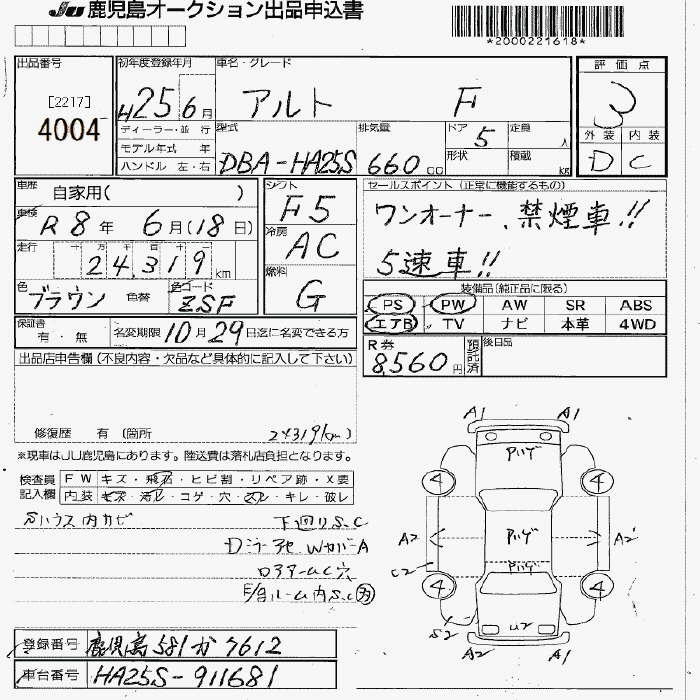 JU 鹿児島オークション出品申込書
*2000221618*
出品番号 初年度登録年月 車名・グレード 評価点
[2217]
4004
H25 6月 アルト F 3
ディーラー・並 行 型式 排気量 ドア 5 定員 人 外装 内装
モデル年式 年
ハンドル 左・右 DBA-HA25S 660 cc 形状 積載 kg D C
車歴 自家用( ) シフト F5 セールスポイント (正常に機能するもの)
車検 R8年 6月(18日) ワンオーナー、禁煙車!!
走行 十万千百十 冷房 AC
24,319 km 5速車!!
色 ブラウン 色替 色コード ZSF 燃料 G 装備品(純正品に限る)
PS PW AW SR ABS
エアB TV ナビ 本革 4WD
保証書 有・無 名変期限 10月29日迄に名変できる方
R券 8,560円 預託済 後日品
出品店申告欄(不良内容・欠品など具体的に記入して下さい)
修復歴 有 (箇所 24319km)
※現車はJU鹿児島にあります。陸送費は落札店負担となります。
検査員記入欄 FW キズ・飛石・ヒビ割・リペア跡・X要
内装 キズ・汚レ・コゲ・穴・スレ・キレ・破レ
下回りS.C
A1 A1
4 4
A2 A2
C2
4 4
S2 U2
A2 A1
登録番号 鹿児島 581 か 7612
車台番号 HA25S-911681